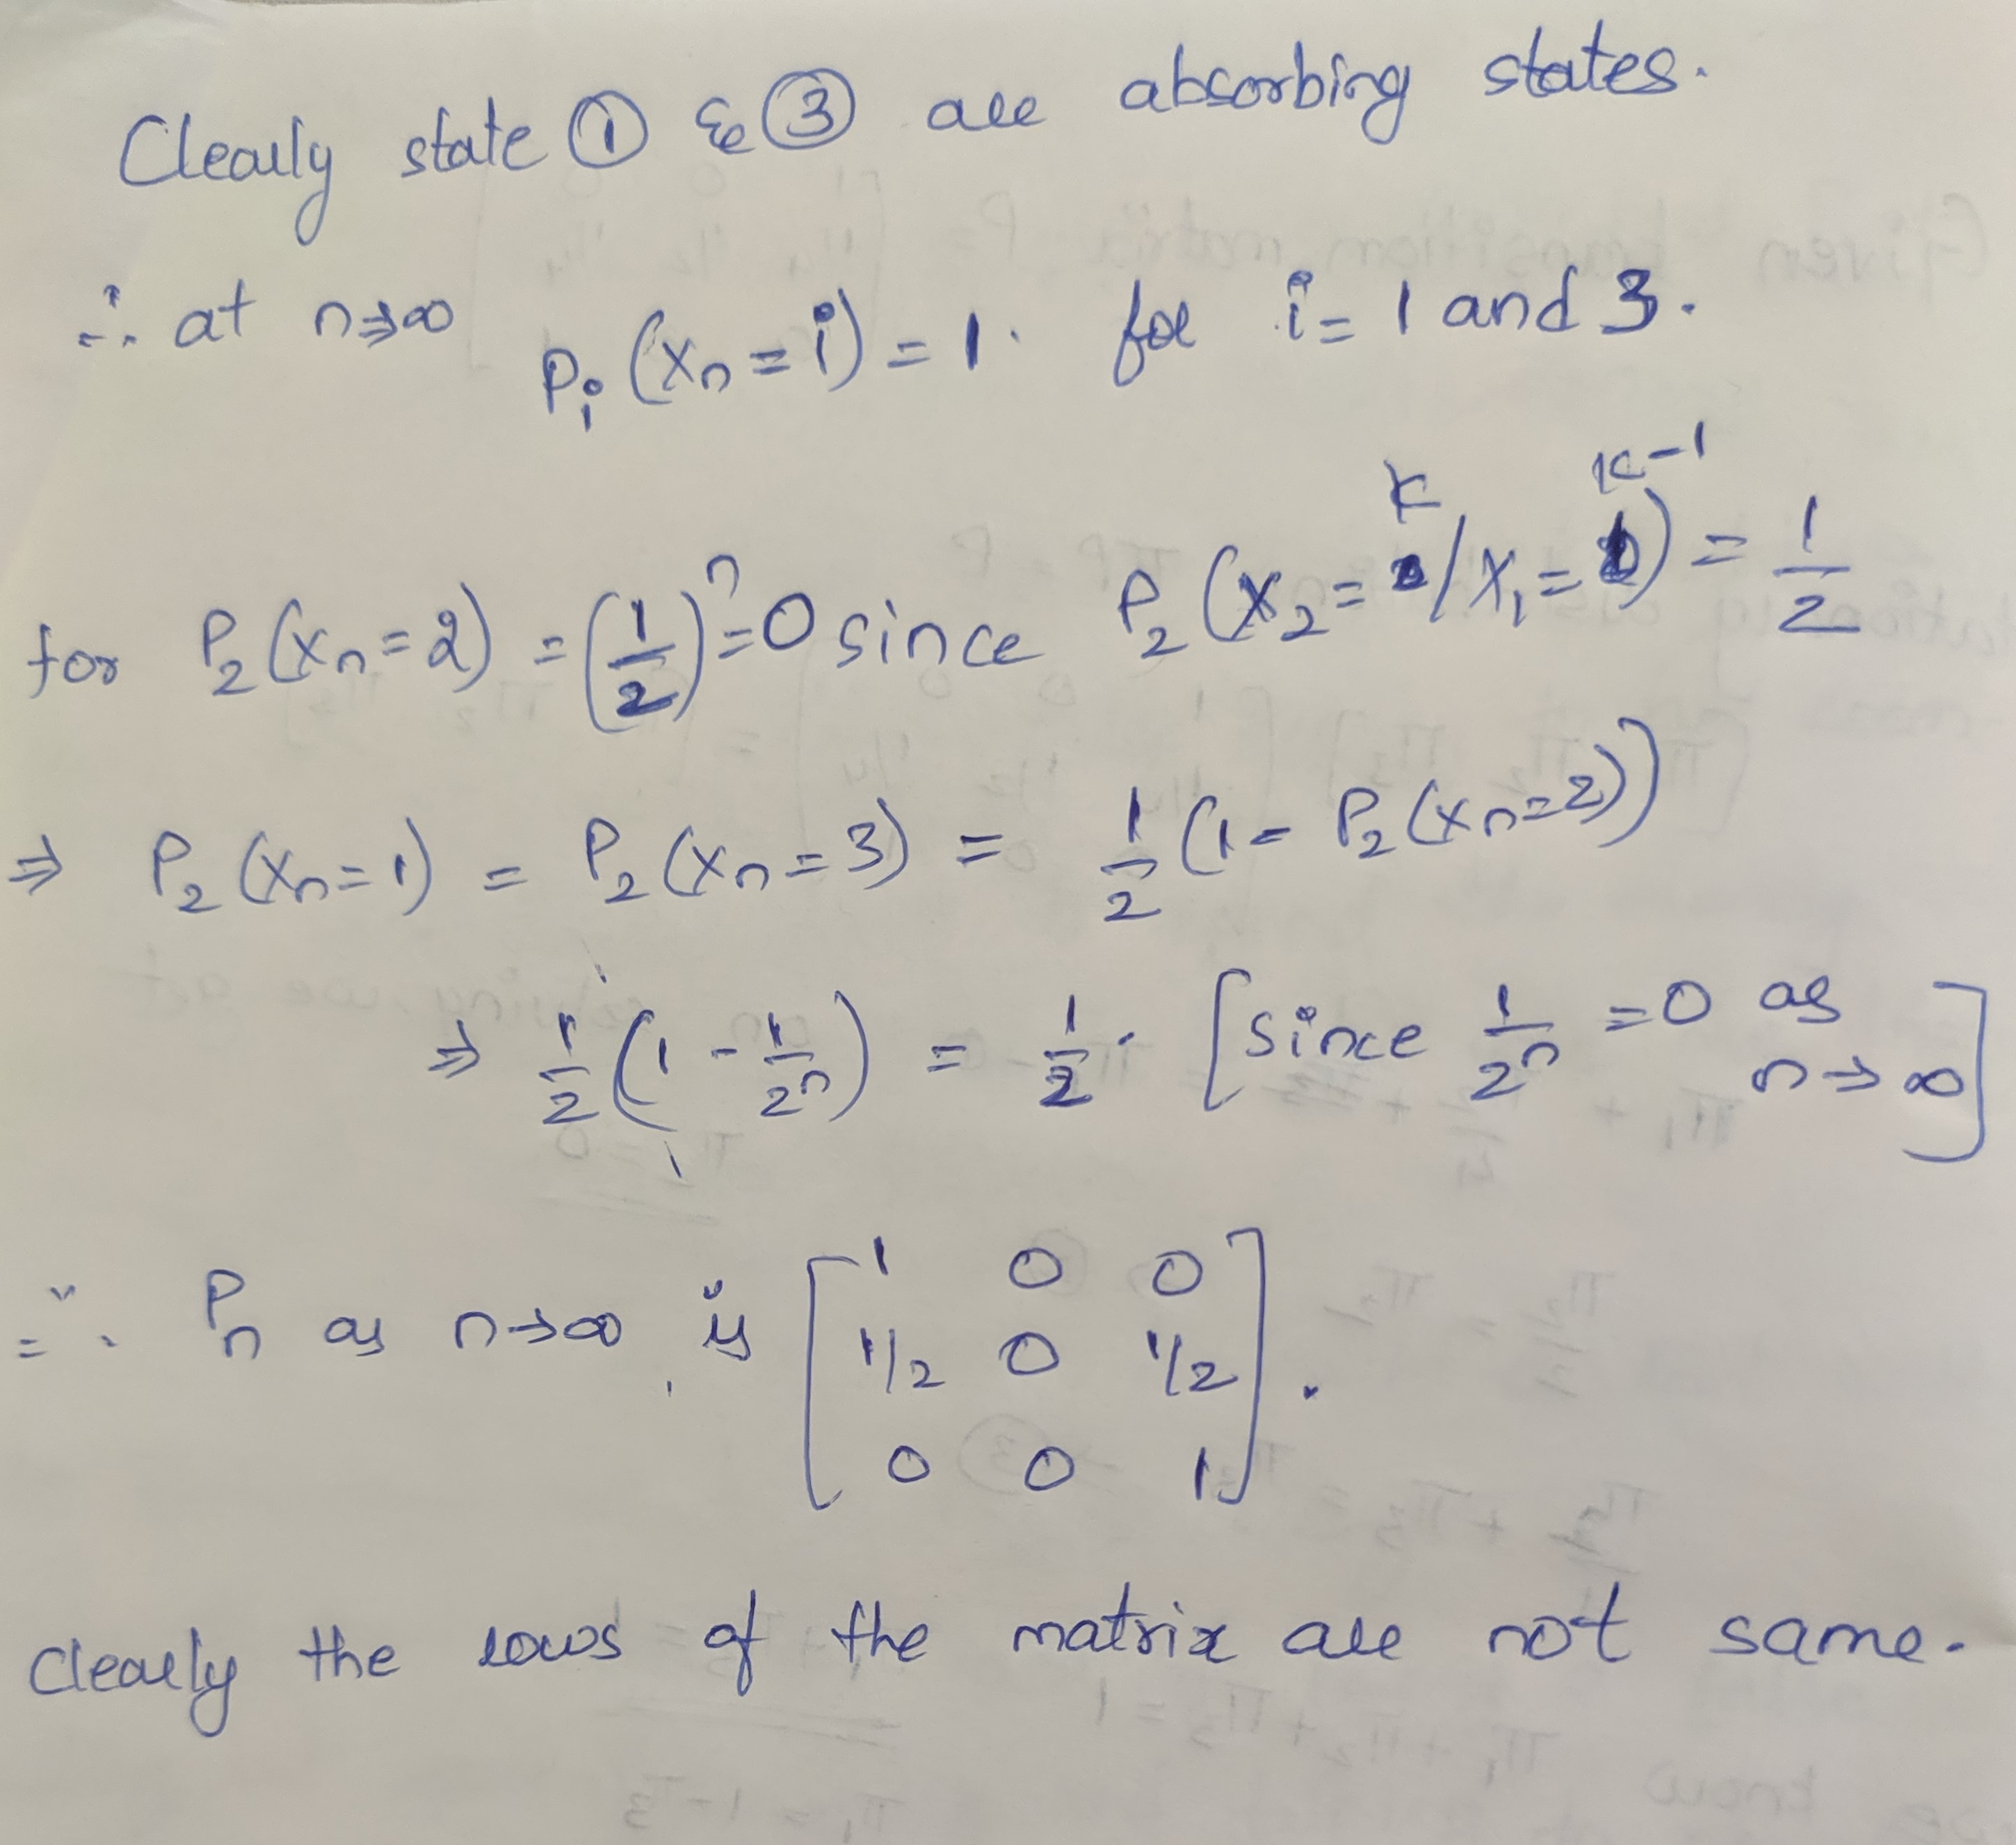 Clearly state ① & ③ are absorbing states.
∴ at n→∞ P_i (X_n = i) = 1. for i = 1 and 3.
for P_2 (X_n = 2) = (1/2)^n = 0 since P_2 (X_2 = k / X_1 = k-1) = 1/2
⇒ P_2 (X_n = 1) = P_2 (X_n = 3) = 1/2 (1 - P_2 (X_n = 2))
⇒ 1/2 (1 - 1/2^n) = 1/2. [since 1/2^n = 0 as n→∞]
∴ P_n as n→∞ is [1 0 0
1/2 0 1/2
0 0 1].
Clearly the rows of the matrix are not same.